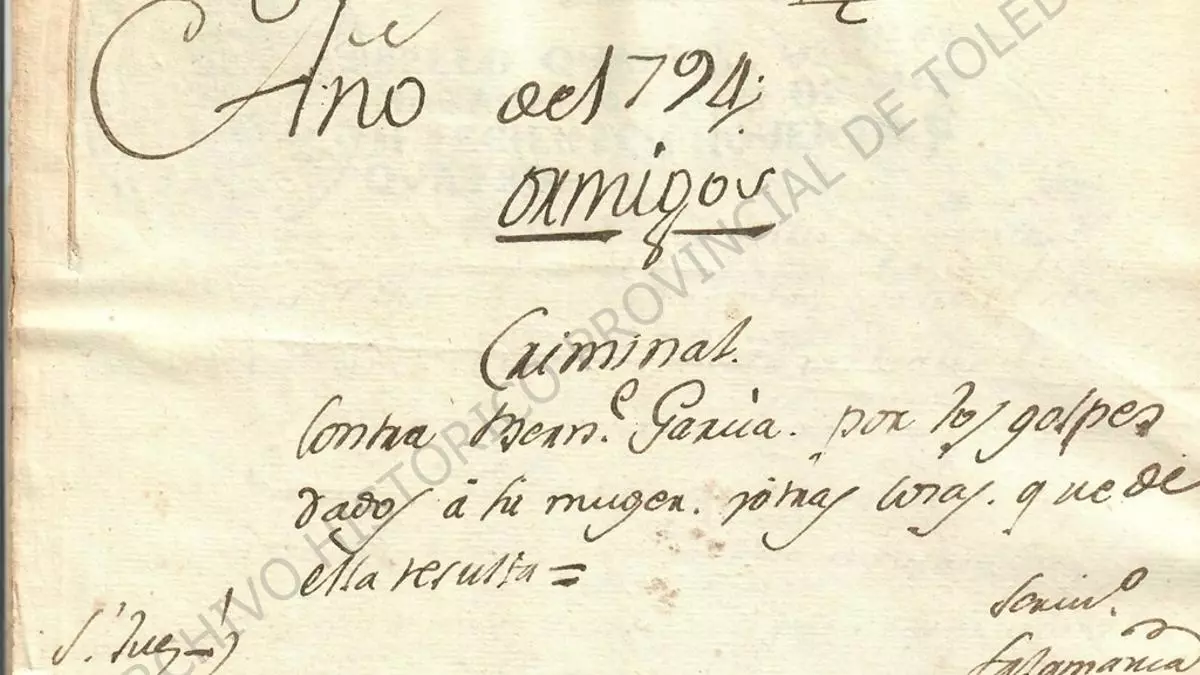 Año del 794.
Ormigos
Criminal.
Contra Bern.º García. por los golpes
dados á su muger. y otras cosas. que de
ella resulta =
S.r Juez
Scriv.º
Salamanca
ARCHIVO HISTORICO PROVINCIAL DE TOLEDO